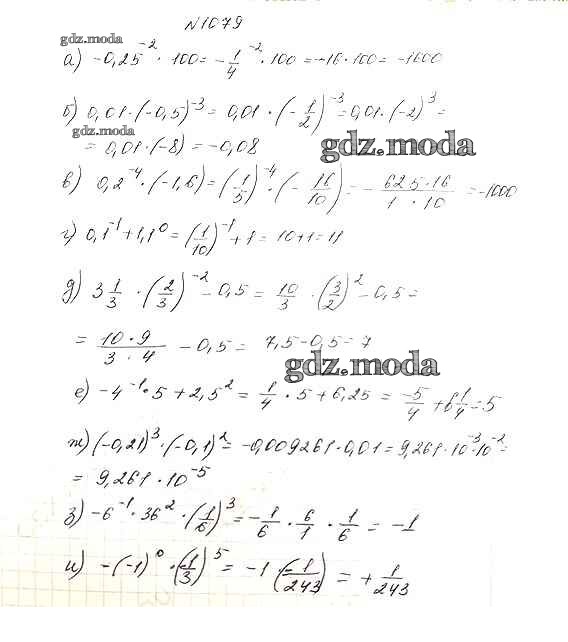 №1079
gdz.moda
а) -0,25⁻² · 100 = -1/4⁻² · 100 = -16 · 100 = -1600
б) 0,01 · (-0,5)⁻³ = 0,01 · (-1/2)⁻³ = 0,01 · (-2)³ =
gdz.moda
= 0,01 · (-8) = -0,08
gdz.moda
в) 0,2⁻⁴ · (-1,6) = (1/5)⁻⁴ · (-16/10) = -625·16/1·10 = -1000
г) 0,1⁻¹ + 1,1⁰ = (1/10)⁻¹ + 1 = 10+1 = 11
д) 3 1/3 · (2/3)⁻² - 0,5 = 10/3 · (3/2)² - 0,5 =
= 10·9/3·4 - 0,5 = 7,5 - 0,5 = 7
gdz.moda
е) -4⁻¹ · 5 + 2,5² = 1/4 · 5 + 6,25 = -5/4 + 6 1/4 = 5
ж) (-0,21)³ · (-0,1)² = -0,009261 · 0,01 = 9,261 · 10⁻³ · 10⁻² =
= 9,261 · 10⁻⁵
з) -6⁻¹ · 36² · (1/6)³ = -1/6 · 6/1 · 1/6 = -1
и) -(-1)⁰ · (-1/3)⁵ = -1 · (-1/243) = +1/243